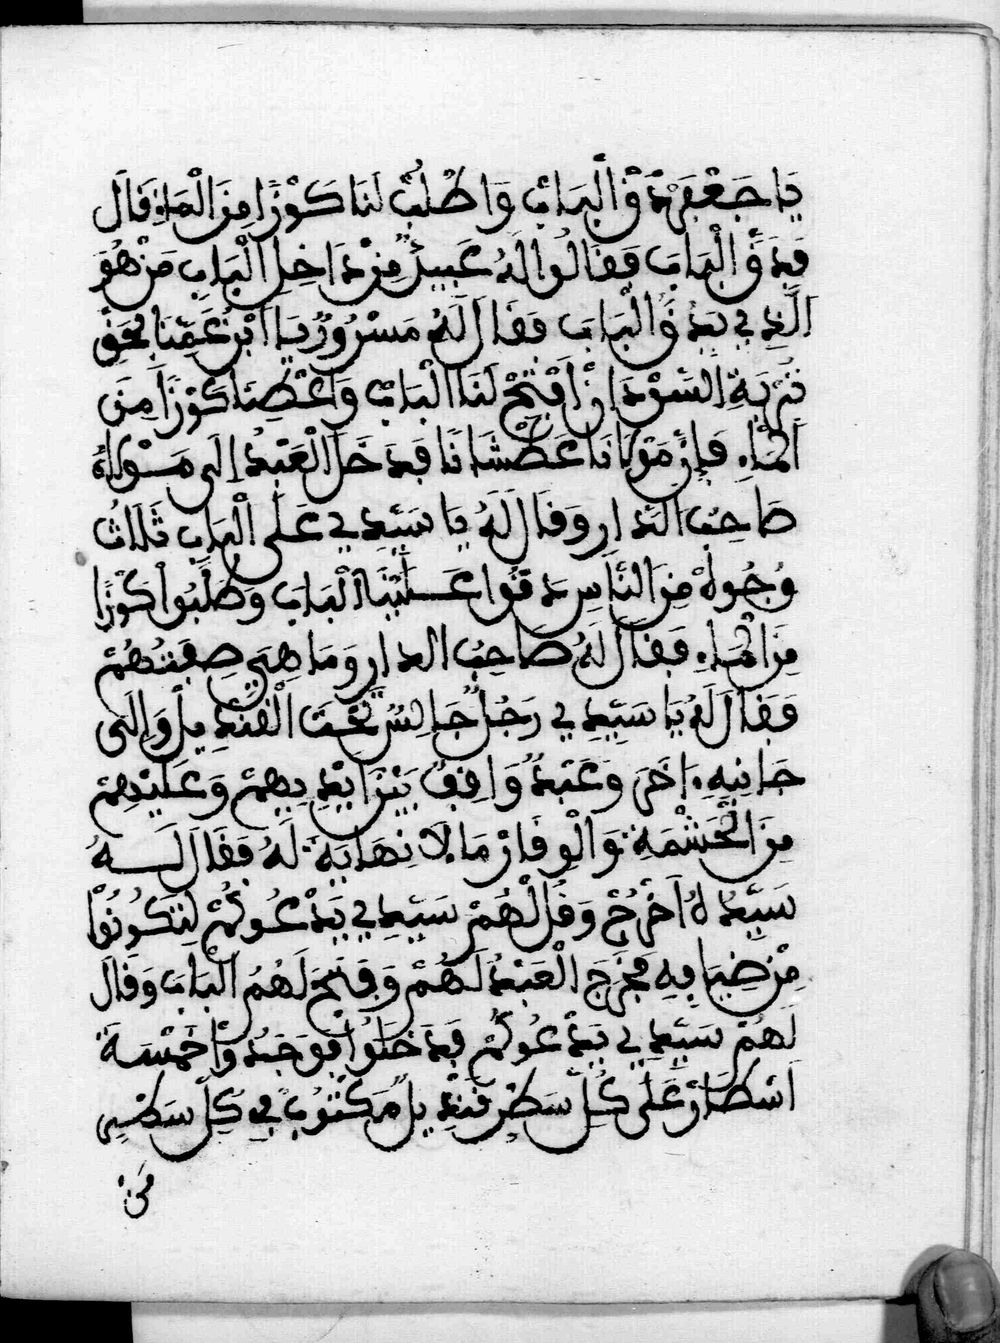 يَا جَعْفَرْ دَقْ الْبَابْ وَاطْلُبْ لَنَا كَوْزًا مِنَ الْمَاءِ فَالَ
فدَقَّ الْبَابَ فقالُوا لَهُ عَبِيدٌ مِنْ دَاخِلِ الْبَابِ مَنْ هُوَ
الَّذِي يَدُقُّ الْبَابَ فقال لَهُ مَسْرُورْ يَا ابْنَ عَمِّنَا بحَقِّ
تُرْبَةِ السُّودَانْ افْتَحْ لَنَا الْبَابْ وَاعْطِنَا كَوْزًا مِنَ
الْمَاءِ فَإِنْ مَوْلَانَا عَطْشَانَا فدَخَلَ الْعَبْدُ إِلَى مَوْلَاهُ
صَاحِبُ الدَّارِ وَقال لَهُ يا سَيِّدِي عَلَى الْبَابِ ثَلَاثْ
وُجُوهْ مِنَ النَّاسِ دَقُّوا عَلَيْنَا الْبَابَ وَطَلَبُوا كَوْزًا
مِنَ الْمَاءِ فقالَ لَهُ صَاحِبُ الدارِ وَمَا هِيَ صِفَتُهُمْ
فَقَالَ لَهُ يَا سَيِّدِي رَجُلٌ جَالِسٌ تَحْتَ الْقَنْدِيلْ وَإِلَى
جَانِبِهِ ءاخَرَ وَعَبْدٌ وَاقِفٌ بَيْنَ ايْدِيهِمْ وَعَلَيْهِمْ
مِنَ الْحَشْمَةِ وَالْوِقَارْ مَا لَا نِهَايَةَ لَهُ فَقَالَ لَهُ
سَيِّدُهُ اخْرُجْ وَقُلْ لَهُمْ سَيِّدِي يَدْعُوكُمْ لِتَكُونُوا
مِنْ ضِيَافِهِ فَخَرَجَ الْعَبْدُ لَهُمْ وَفتَحَ لَهُمُ الْبَابَ وَقَالَ
لَهُمْ سَيِّدِي يَدْعُوكُمْ فدَخَلُوا فوَجَدُوا خَمْسَةَ
اسْطَارْ عَلَى كُلِّ سَطْرِ قَنْدِيلْ مَكْتُوبٌ فِي كِلِّ سَطْرِ
مَن